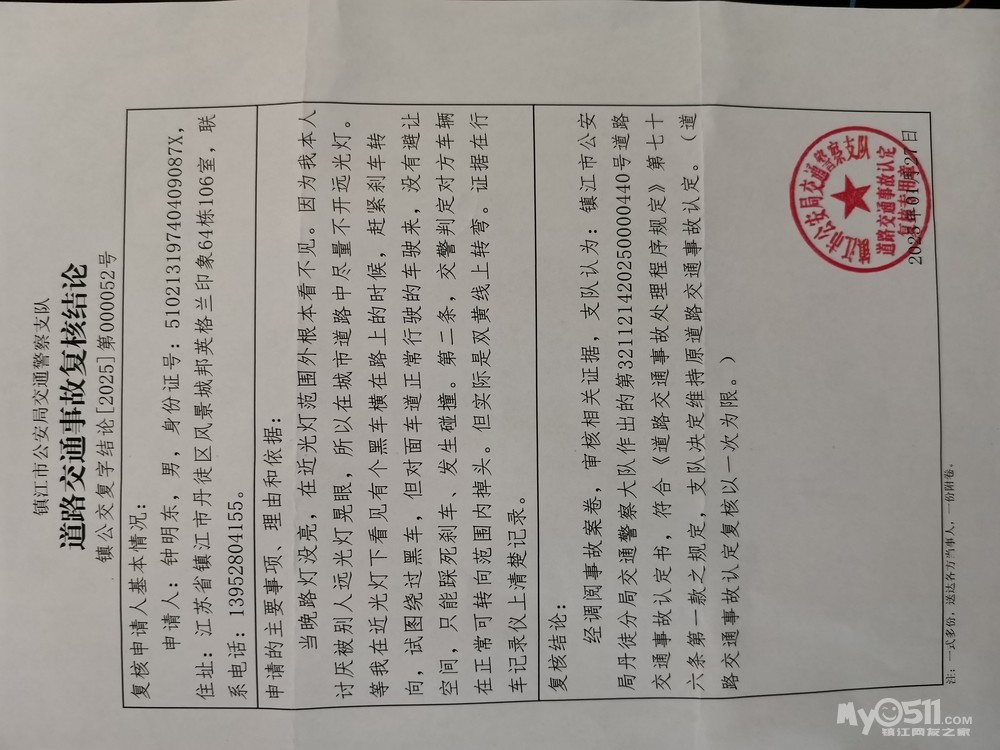 镇江市公安局交通警察支队
道路交通事故复核结论
镇公交复字结论[2025]第000052号
复核申请人基本情况：
申请人：钟明东，男，身份证号：51021319740409087X，
住址：江苏省镇江市丹徒区风景城邦英格兰印象64栋106室，联
系电话：13952804155。
申请的主要事项、理由和依据：
当晚路灯没亮，在近光灯范围外根本看不见。因为我本人
讨厌被别人远光灯晃眼，所以在城市道路中尽量不开远光灯。
等我在近光灯下看见有个黑车横在路上的时候，赶紧刹车转
向，试图绕过黑车，但对面车道正常行驶的车驶来，没有避让
空间，只能踩死刹车、发生碰撞。第二条，交警判定对方车辆
在正常可转向范围内掉头。但实际是双黄线上转弯。证据在行
车记录仪上清楚记录。
复核结论：
经调阅事故案卷，审核相关证据，支队认为：镇江市公安
局丹徒分局交通警察大队作出的第3211214202500000440号道路
交通事故认定书，符合《道路交通事故处理程序规定》第七十
六条第一款之规定，支队决定维持原道路交通事故认定。（道
路交通事故认定复核以一次为限。）
镇江市公安局交通警察支队
道路交通事故认定
复核专用章
2025年01月27日
注：一式多份，送达各方当事人，一份附卷。
My0511.COM
镇江网友之家